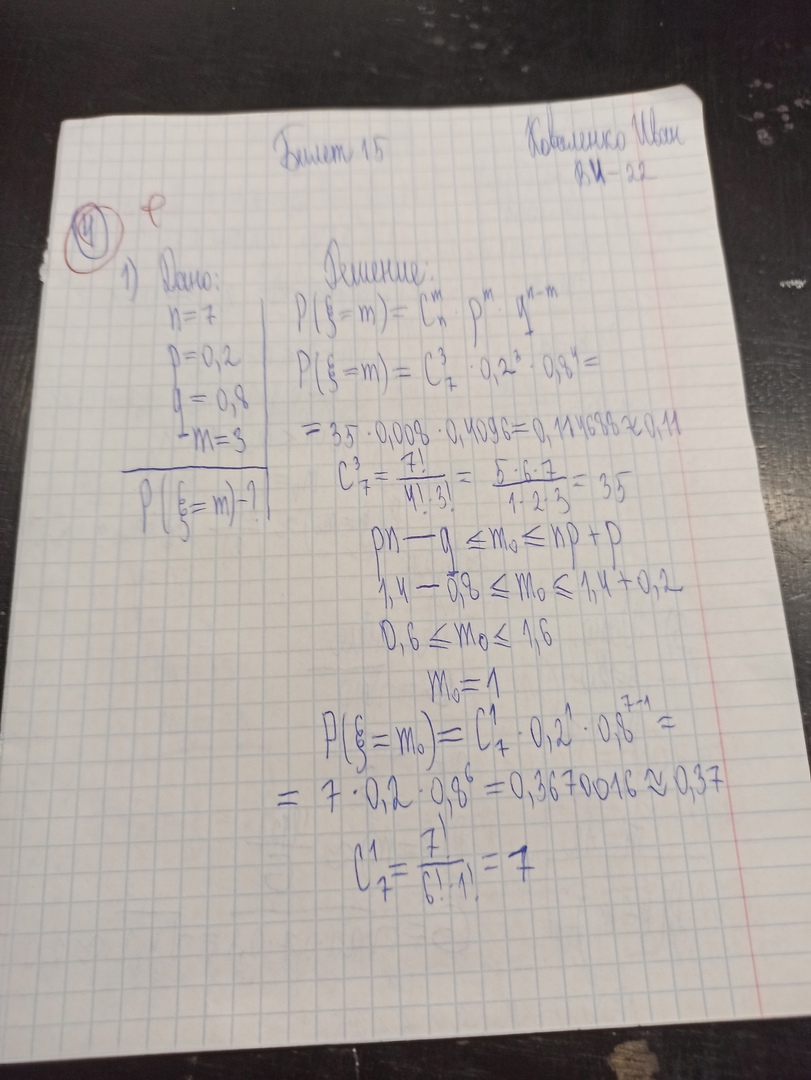 Билет 15
Коваленко Иван
ВИ-22
4
1) Дано:
n=7
p=0,2
q=0,8
-m=3
P(ξ=m)-?
Решение:
P(ξ=m)= C_n^m · p^m · q^{n-m}
P(ξ=m) = C_7^3 · 0,2^3 · 0,8^4 =
= 35 · 0,008 · 0,4096 = 0,114688 ≈ 0,11
C_7^3 = 7!/(4!·3!) = (5·6·7)/(1·2·3) = 35
pn - q ≤ m₀ ≤ np + p
1,4 - 0,8 ≤ m₀ ≤ 1,4 + 0,2
0,6 ≤ m₀ ≤ 1,6
m₀ = 1
P(ξ=m₀) = C_7^1 · 0,2^1 · 0,8^{7-1} =
= 7 · 0,2 · 0,8^6 = 0,3670016 ≈ 0,37
C_7^1 = 7!/(6!·1!) = 7